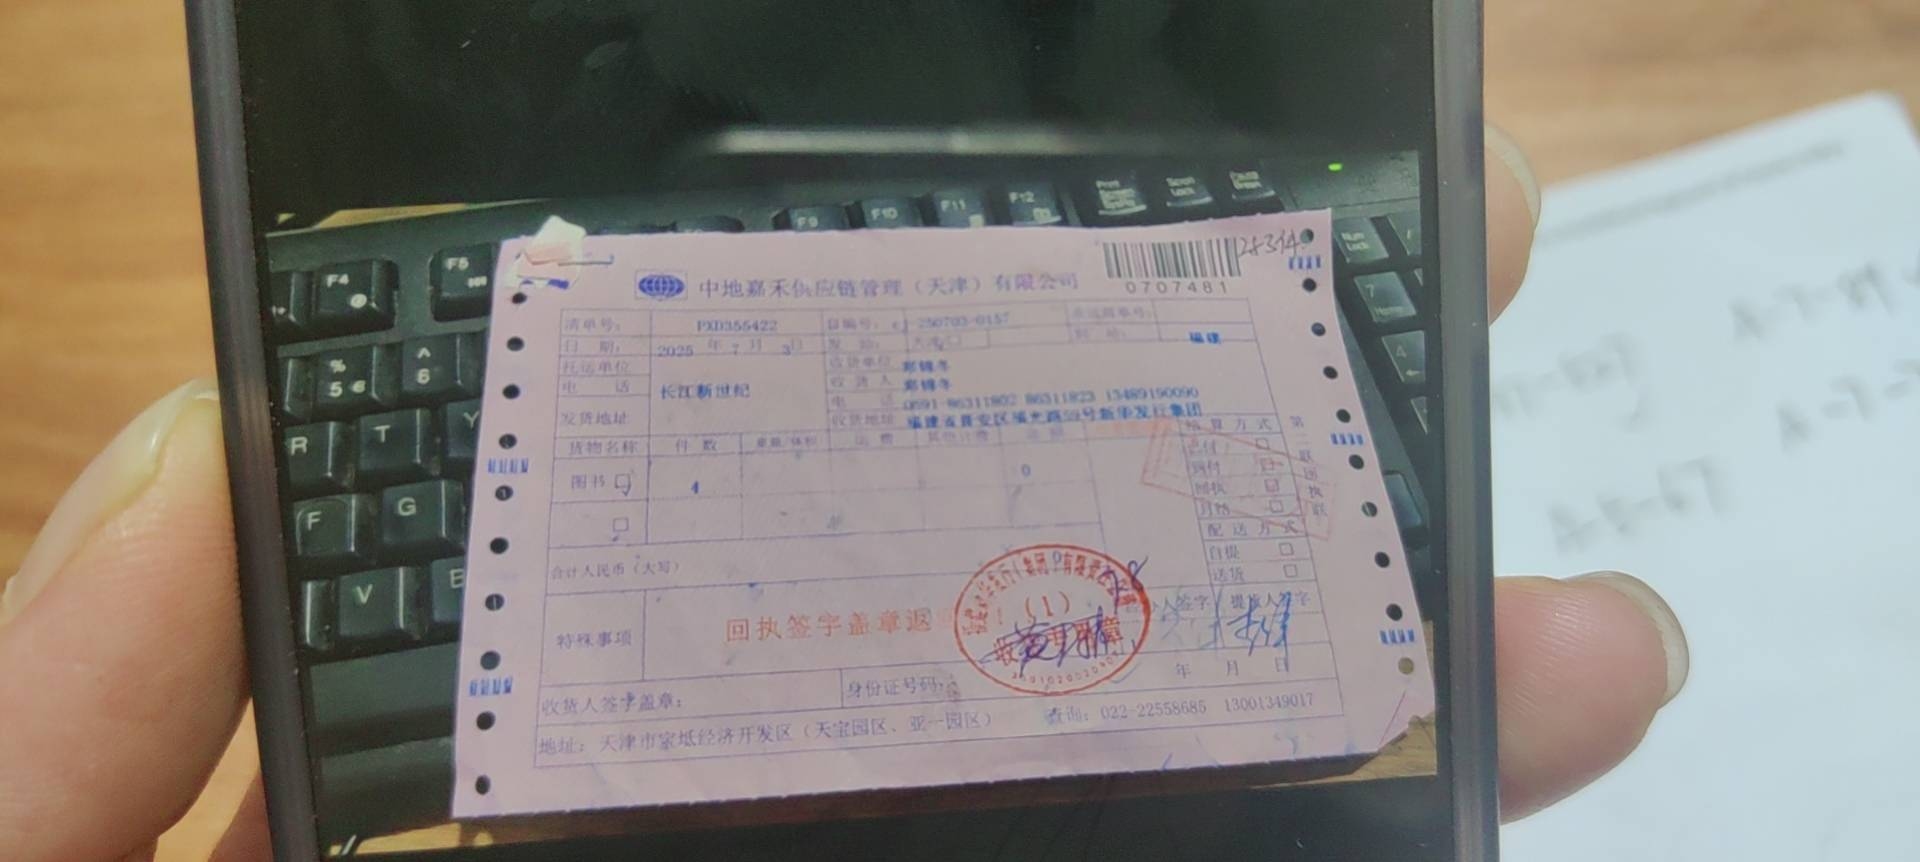 F9 F10 F11 F12 Print Screen Scroll Lock Pause Break
F4 F5
Num Lock
7
4
% 5 €
^ 6
R T Y
F G
V
中地嘉禾供应链管理（天津）有限公司
0707481
清单号： PXD355422 自编号： 250703-0157
日 期： 2025 年 7 月 3 日 发 站： 到 站： 福建
托运单位 长江新世纪 收货单位 郑锦冬
电 话 收 货 人 郑锦冬
电 话 0591-86311802 86311823 13489190090
发货地址 收货地址 福建省晋安区福光路59号新华发行集团
货物名称 件 数 重量/体积 运 费 其他计费 金 额 结 算 方 式
图书 4 0
到付
回执
月结
配 送 方 式
自提
送货
第二联 回执联
合计人民币（大写）
特殊事项 回执签字盖章返
(1)
收 专用章
签字 提货人签字
年 月 日
收货人签字盖章： 身份证号码：
地址：天津市宝坻经济开发区（天宝园区、亚一园区） 查询：022-22558685 13001349017